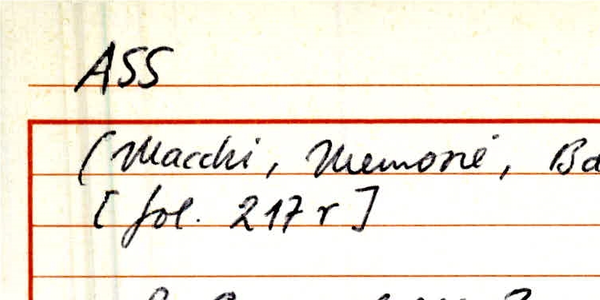 ASS
(Macchi, Memorie, Bd
[fol. 217r]